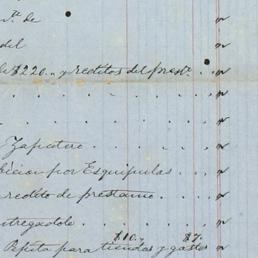 de
del
de $220.. y reditos del prest.º
Zapatero
por Esquipulas
redito de prestamo
entregadole
$10. $7.
Pepita para tiendas y gasto